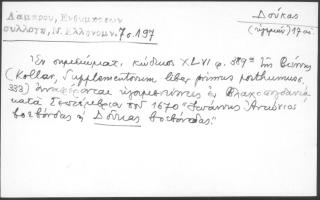 Λάμπρου, Ενθυμήσεων
συλλογή, Ν. Ελληνομν. 7 σ. 197
Δούκας
(ηγεμών) 17 αι.
Ἐν σημειώματ. κώδικος XLVI φ. 389α τῆς Βιέννης
(Kollar, Supplementorum liber primus posthumus,
333) ἀναφέρεται ἡγεμονεύοντας ἐν
κατὰ Σεπτέμβριον τοῦ 1670 "Ἰωάννης Ἀντώνιος
βοεβόνδας ὁ Δούκας βοεβόνδας."